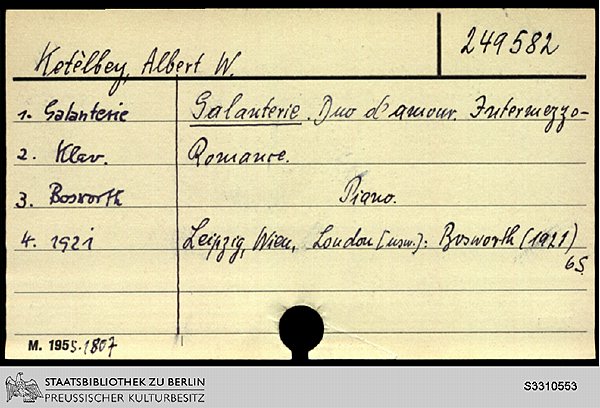 Ketèlbey, Albert W. 249582
1. Galanterie Galanterie. Duo d'amour. Intermezzo-
2. Klav. Romance.
3. Bosworth Piano.
4. 1921 Leipzig, Wien, London [usw.]: Bosworth (1921)
6 S.
M. 1955.1807
STAATSBIBLIOTHEK ZU BERLIN
PREUSSISCHER KULTURBESITZ
S3310553